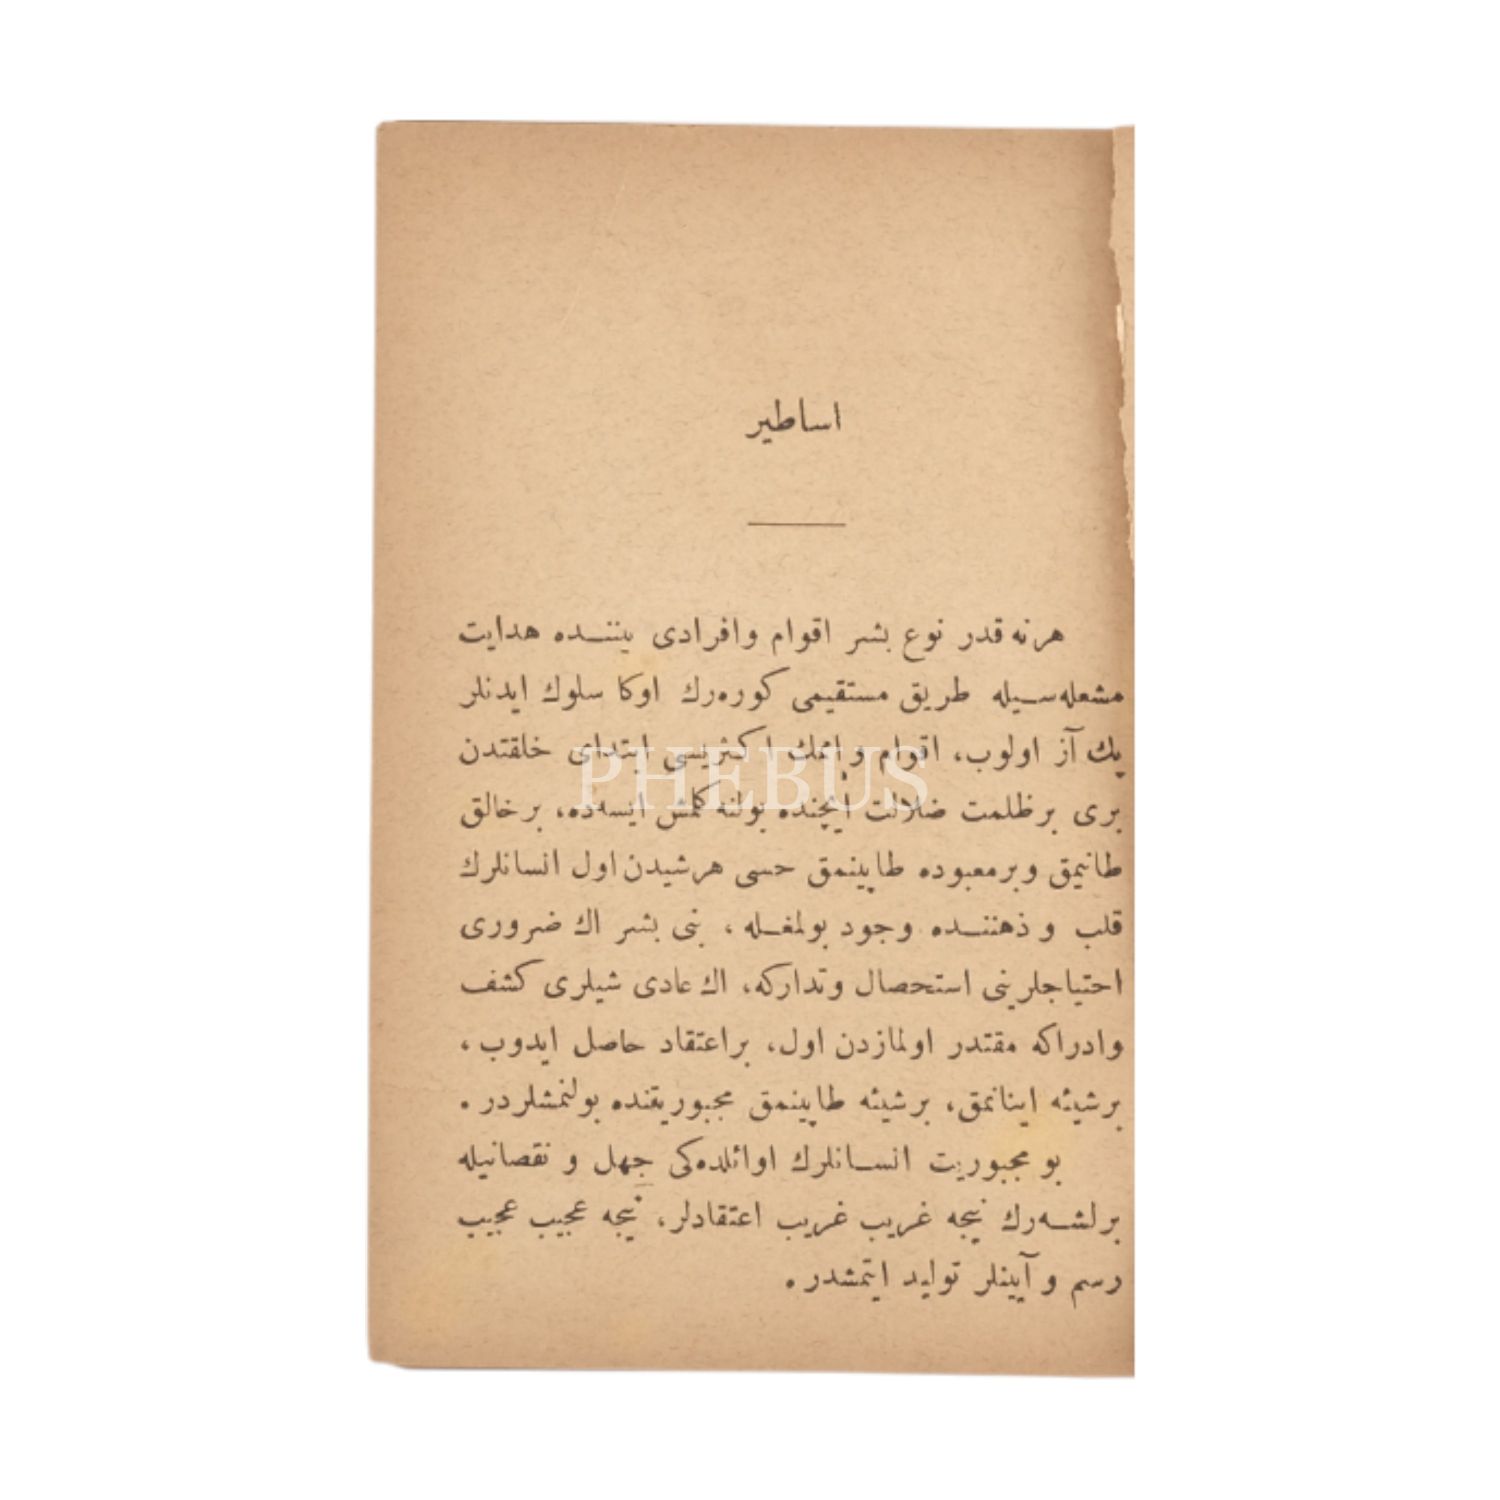 اساطير
هرنه قدر نوع بشر اقوام وافرادى بيننده هدايت
مشعله‌سيله طريق مستقيمى كوره‌رك اوكا سلوك ايدنلر
پك آز اولوب، اقوام و امك اكثريسى ابتداى خلقتدن
برى بر ظلمت ضلالت ايچنده بولنه‌كلمش ايسه‌ده، برخالق
طانيمق وبرمعبوده طاپينمق حسى هرشيدن اول انسانلرك
قلب و ذهننده وجود بولمغله، بنى بشر اك ضرورى
احتياجلرينى استحصال وتداركه، اك عادى شيلرى كشف
وادراكه مقتدر اولمازدن اول، براعتقاد حاصل ايدوب،
برشيئه اينانمق، برشيئه طاپينمق مجبوريتنده بولنمشلردر.
بو مجبوريت انسانلرك اوائلده‌كى جهل و نقصانيله
برلشه‌رك نيجه غريب غريب اعتقادلر، نيجه عجيب عجيب
رسم و آيينلر توليد ايتمشدر.
PHEBUS